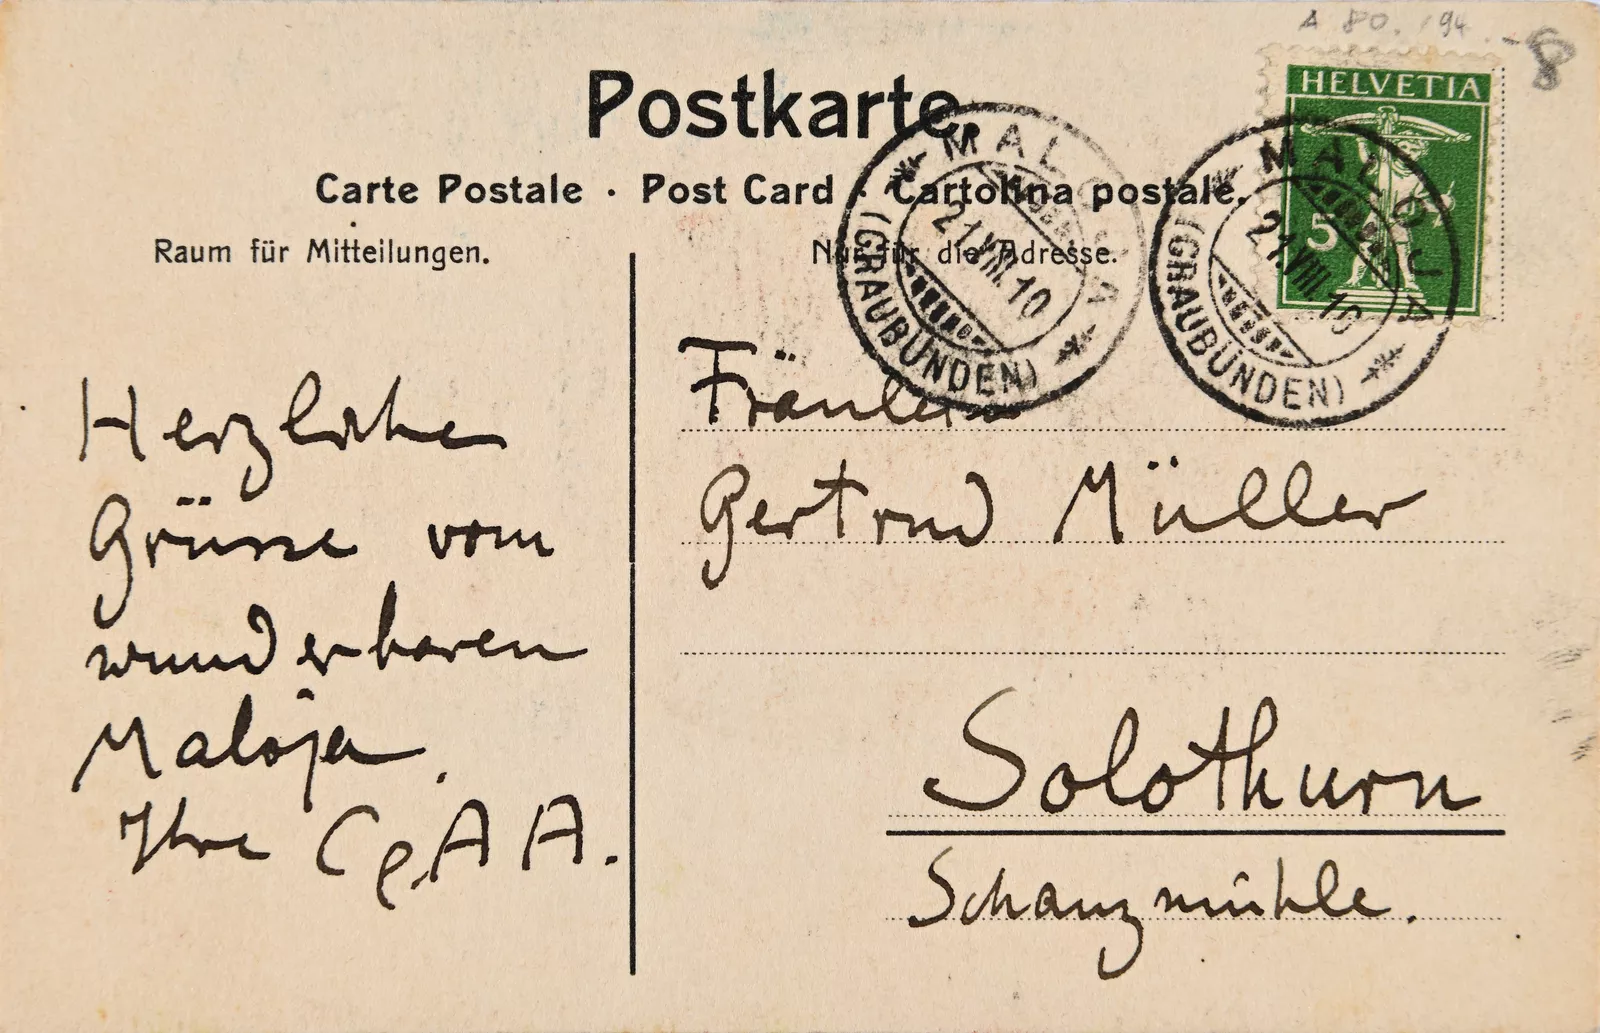 A 80. 194. -8
Postkarte
Carte Postale · Post Card · Cartolina postale.
Raum für Mitteilungen.
Nur für die Adresse.
HELVETIA
5
MALOJA
21.VIII.10
(GRAUBÜNDEN)
MALOJA
21.VIII.10
(GRAUBÜNDEN)
Herzliche
Grüsse vom
wunderbaren
Maloja.
Ihre C & A A.
Fräulein
Gertrud Müller
Solothurn
Schanzmühle.